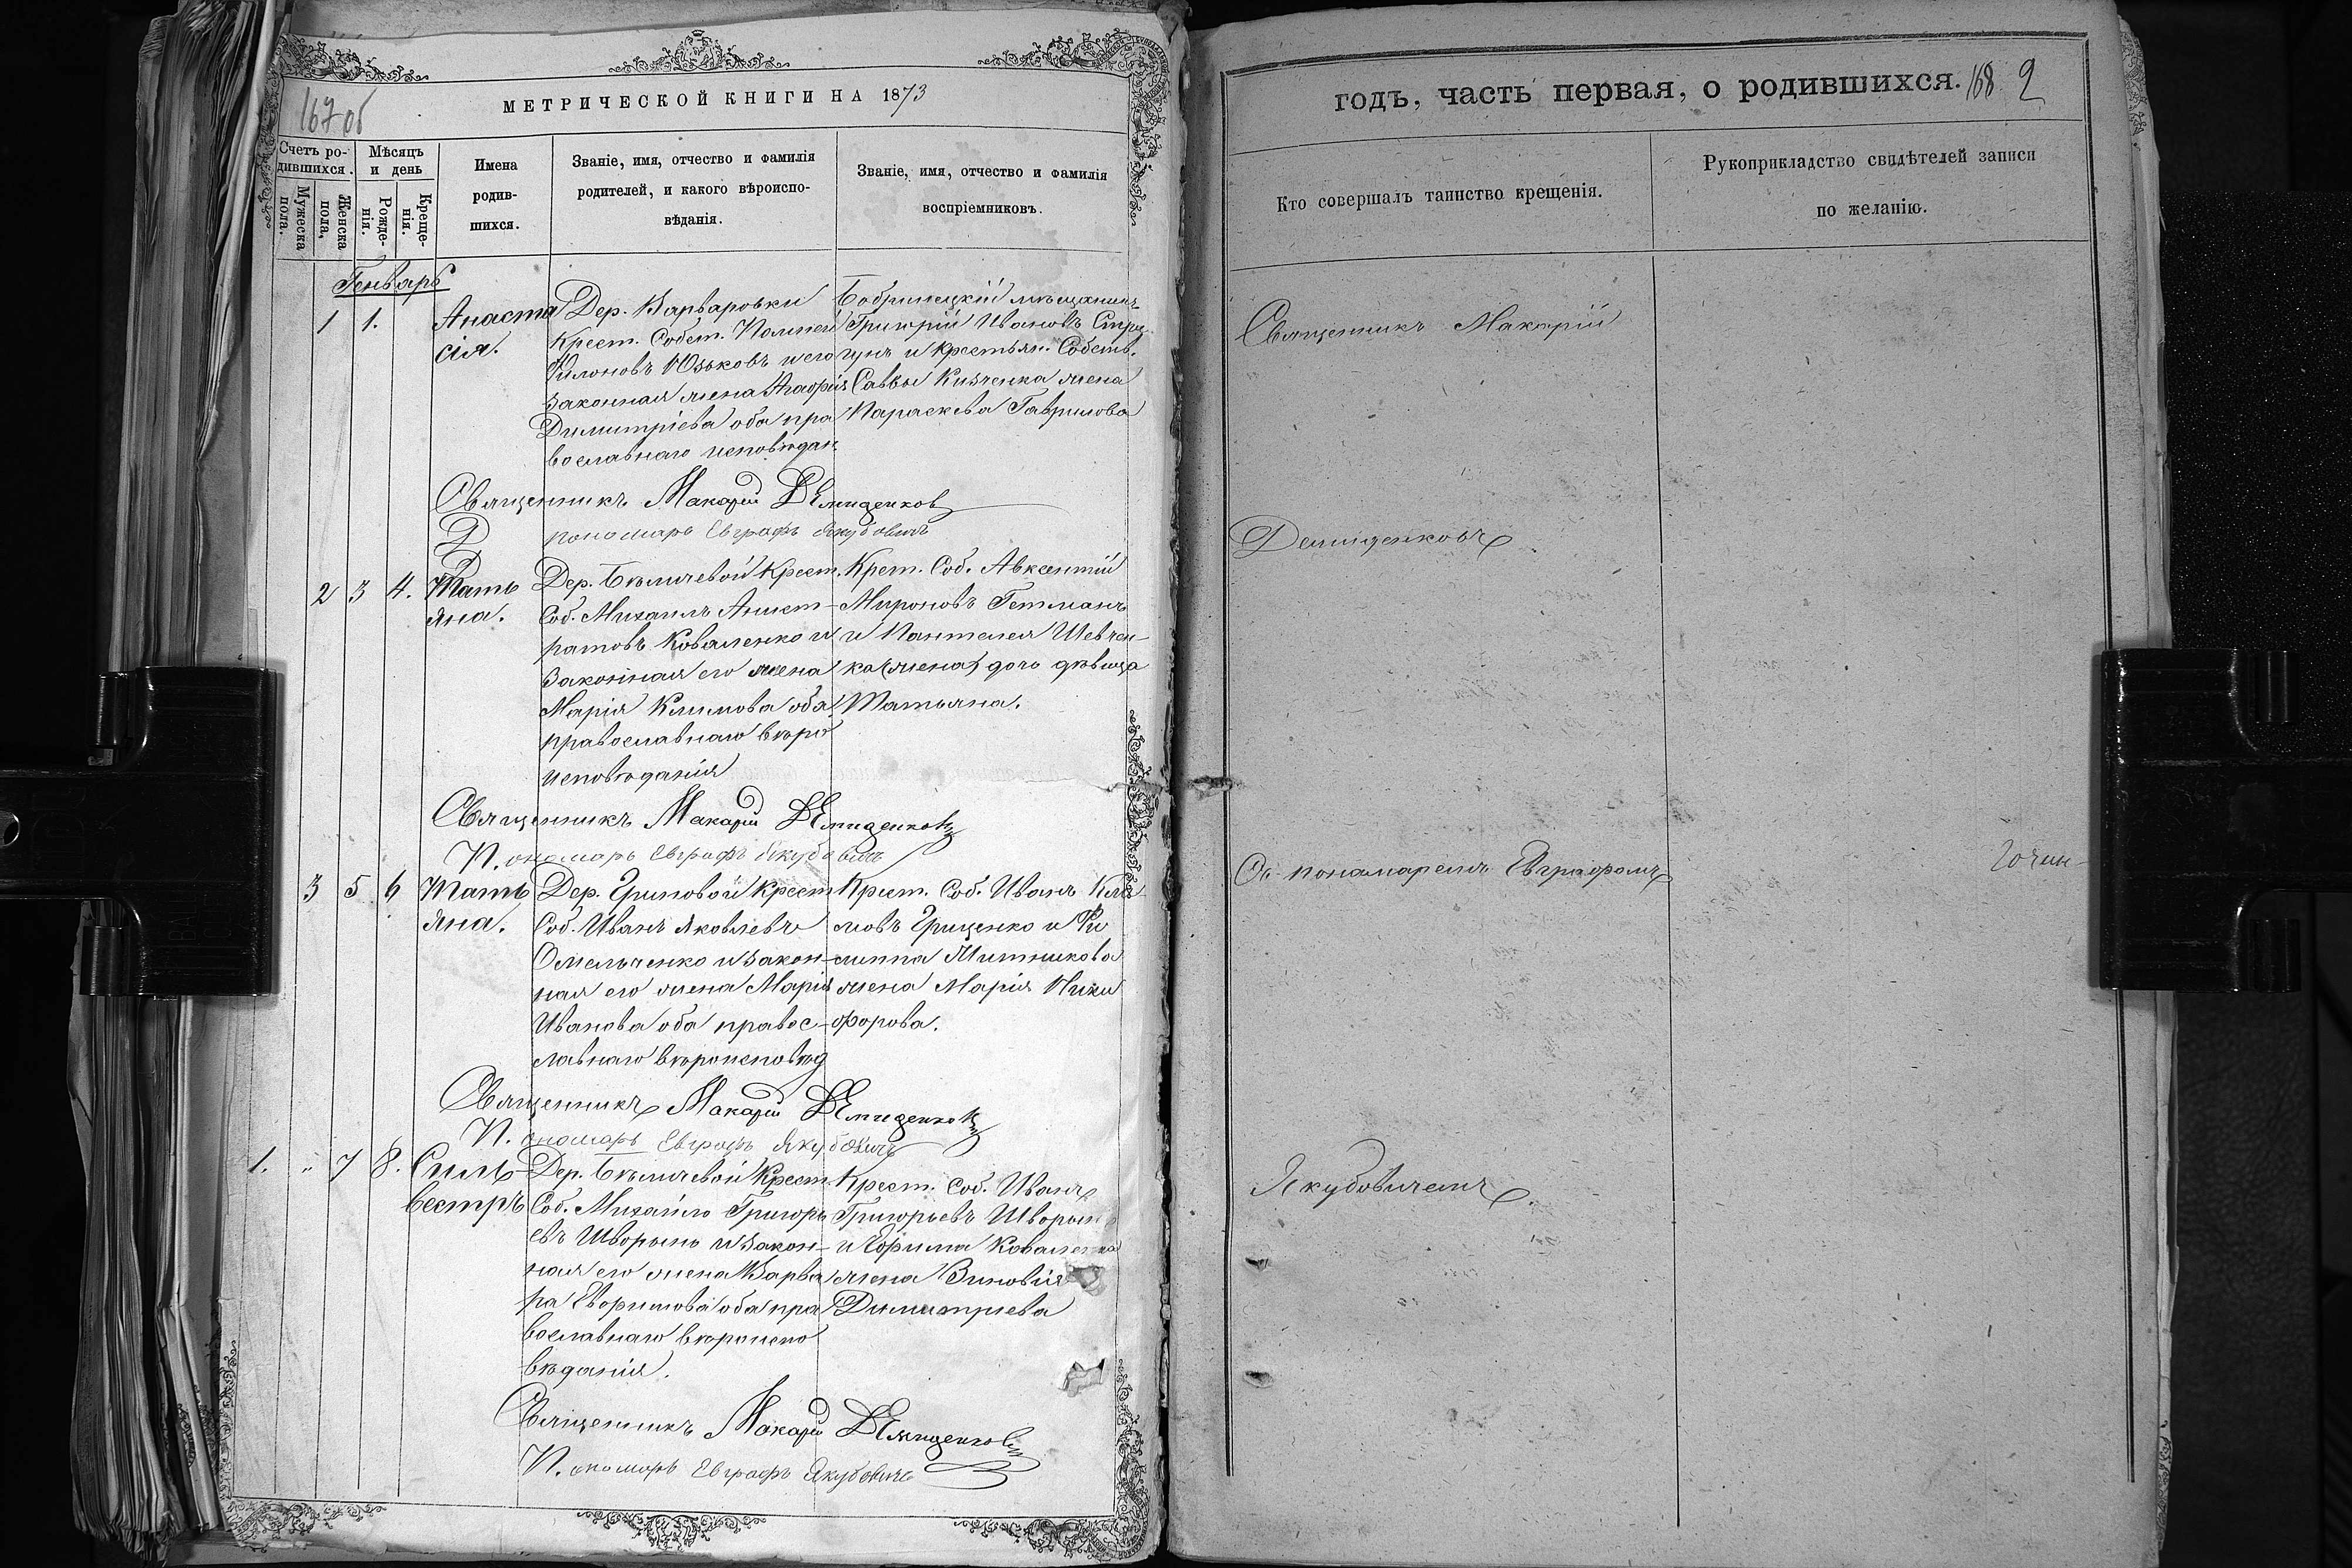 167 об
МЕТРИЧЕСКОЙ КНИГИ НА 1873
Счетъ ро-
дившихся.
Мужеска
пола.
Женска
пола,
Мѣсяцъ
и день
Рожде-
нія.
Креще-
нія.
Имена
родив-
шихся.
Званіе, имя, отчество и фамилія
родителей, и какого вѣроиспо-
вѣданія.
Званіе, имя, отчество и фамилія
воспріемниковъ.
Генварь
1 1.
Анаста
сія.
Дер. Варваровки
Крест. Собст.
Филоновъ Юзьковъ и его
законная жена Агафія
Димитріева оба пра
вославнаго исповѣдан.
Бобринецкій мѣщанинъ
Григорій Ивановъ
и крестьян. Собств.
Саввы Кизченка жена
Параскева Гаврилова
Священникъ Макарій Демиденковъ
пономарь Евграфъ Якубовичъ
2 3 4.
Тать
яна.
Дер. Бѣличевой Крест.
Соб. Михаилъ Анист-
ратовъ Коваленко и
законная его жена
Марія Климова оба
православнаго вѣро
исповѣданія
Крет. Соб. Авксентій
Мироновъ Гетманъ
и Пантелея Шевчен-
ка (жена) дочь дѣвица
Татьяна.
Священникъ Макарій Демиденковъ
Пономарь Евграфъ Якубовичъ
3 5 6
Тать
яна.
Дер. Гриповой Крест
Соб. Иванъ Яковлевъ
Омельченко и закон-
ная его жена Марія
Иванова оба правос-
лавнаго вѣроисповѣд
Крест. Соб. Иванъ Кли-
мовъ Грищенко и Фи
липпа Митникова
жена Марія Ники
форова.
Священникъ Макарій Демиденковъ
Пономарь Евграфъ Якубовичъ
1. „ 7 8.
Силь
вестръ
Дер. Бѣличевой Крест.
Соб. Михайло Григорь
евъ Шворынь и закон-
ная его жена Варва
ра Евфимова оба пра
вославнаго вѣроиспо
вѣданія.
Крест. Соб. Иванъ
Григорьевъ Шворынь
и Ефима Коваленка
жена Зиновія
Димитріева
Священникъ Макарій Демиденковъ
Пономарь Евграфъ Якубовичъ
годъ, часть первая, о родившихся. 168 2
Кто совершалъ таинство крещенія.
Рукоприкладство свидѣтелей записи
по желанію.
Священникъ Макарій
Демиденковъ
Съ пономаремъ Евграфомъ
Якубовичемъ.